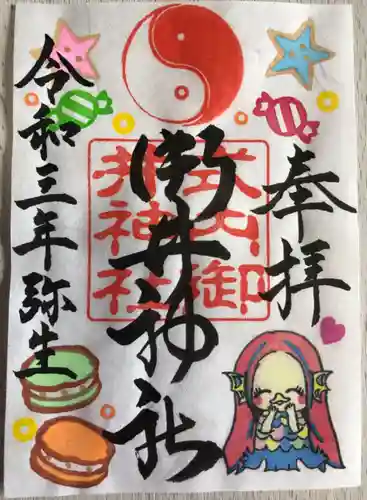 奉拝
御井神社
式内御
井神社
令和三年弥生